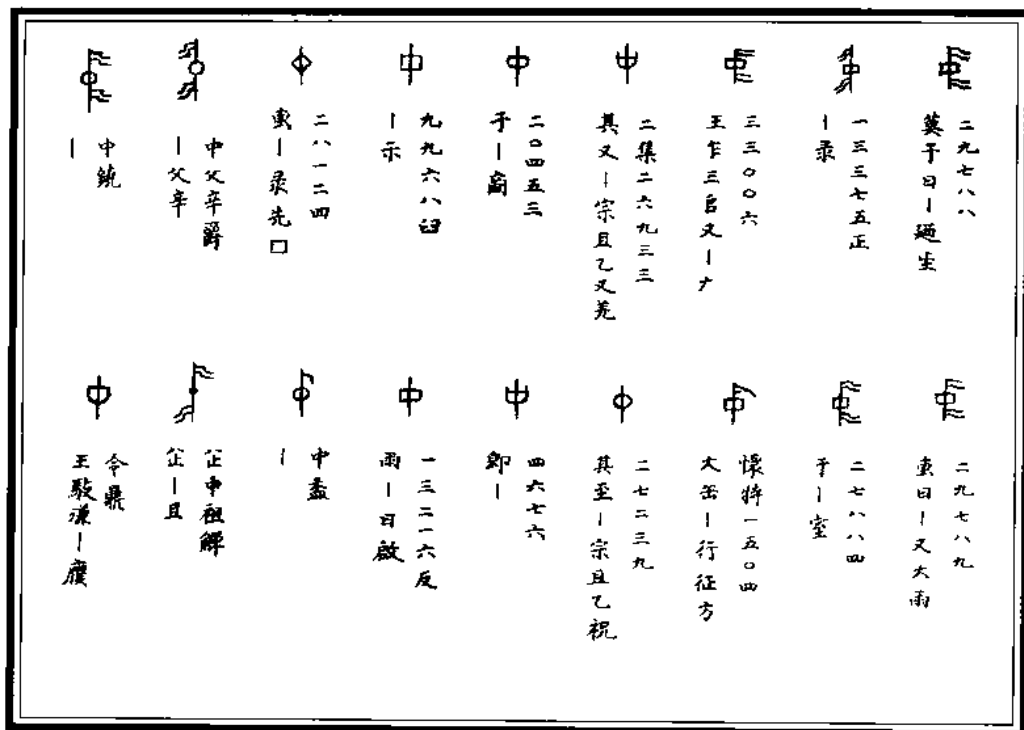 二九七八八
莫于日丨廼
一三三七五正
丨录
三三〇〇六
王乍三𠂤又丨ナ
二集二六九三三
其又丨宗且乙又羌
二〇四五三
于丨商
九九六八臼
丨示
二八一二四
叀丨录先□
中父辛爵
丨父辛
中鐃
丨
二九七八九
叀日丨又大雨
二七八八四
于丨室
懷特一五〇四
大丨行征方
二七二三九
其至丨宗且乙祝
四六七六
丨
一三二一六反
雨丨日啟
中盉
丨
中祖觶
丨且
令鼎
王馭溓丨